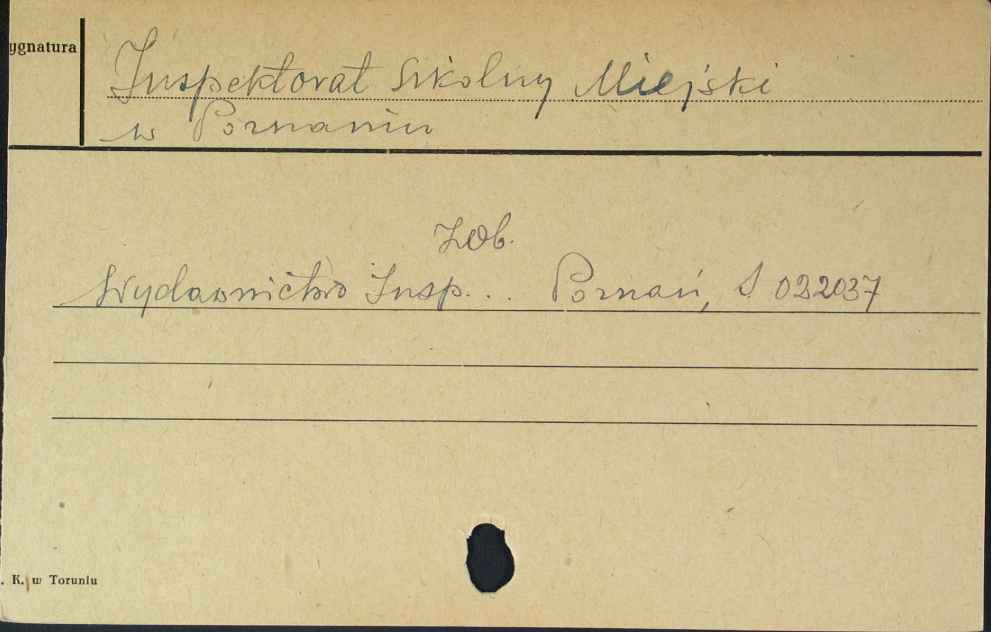 ygnatura
Inspektorat Szkolny Miejski
w Poznaniu
Zob.
Wydawnictwo Insp... Poznań, S 032037
. K. w Toruniu